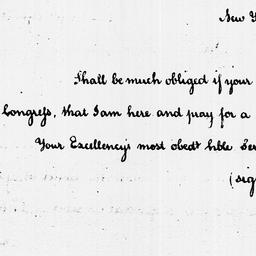 New Y
Shall be much obliged if your
Congress, that I am here and pray for a
Your Excellency's most obedt hble Ser
(sig